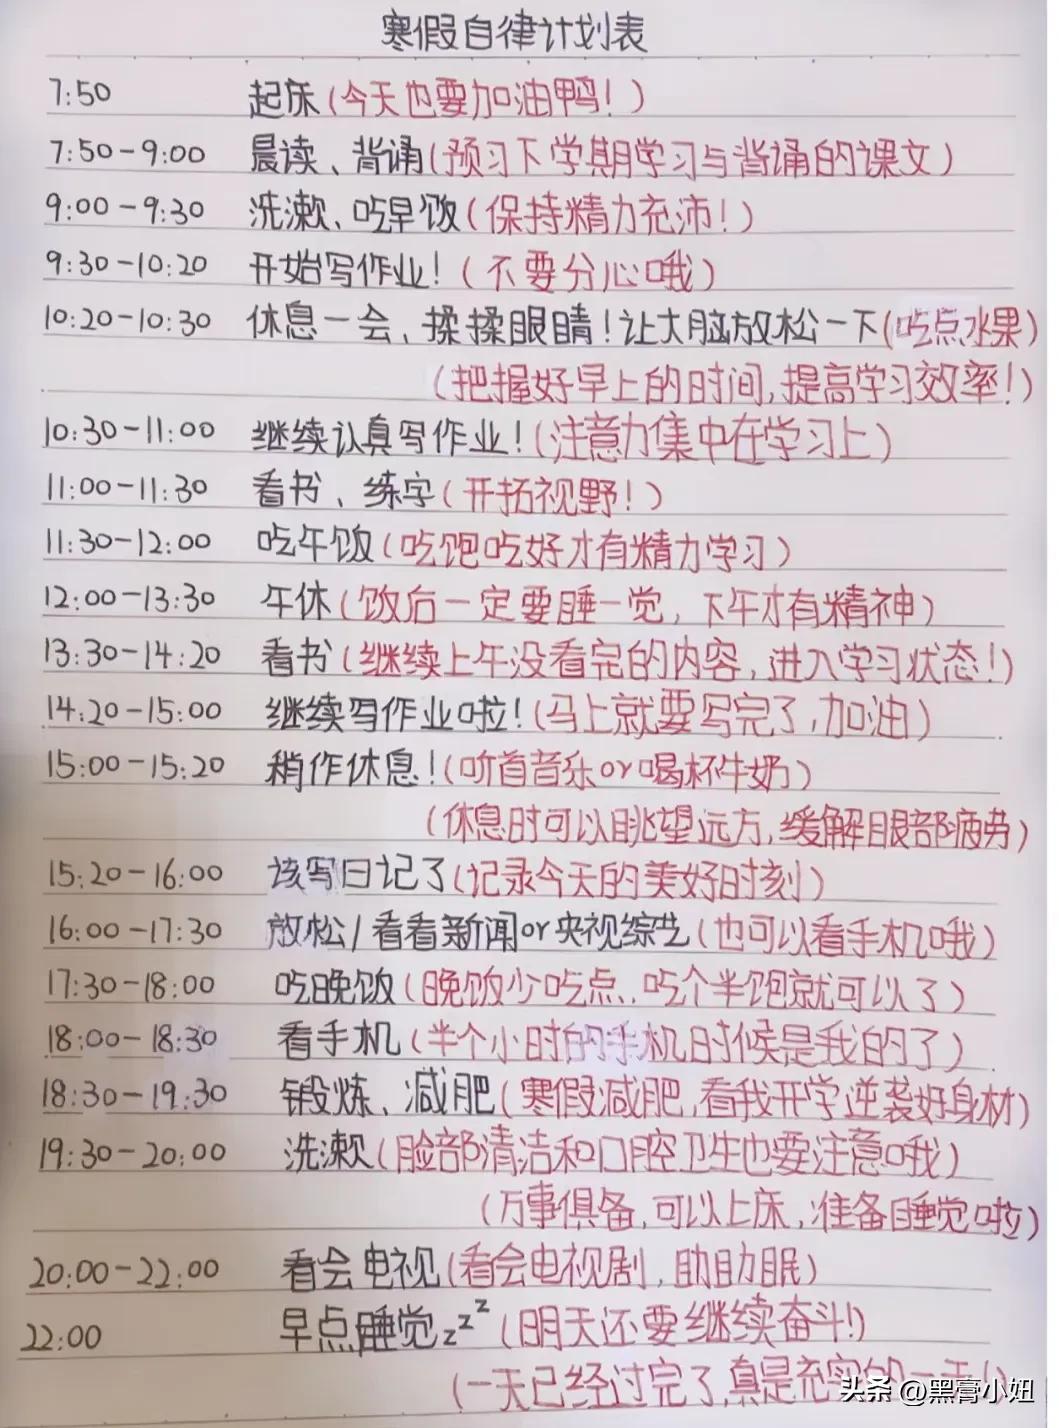 寒假自律计划表
7:50 起床(今天也要加油鸭!)
7:50-9:00 晨读、背诵(预习下学期学习与背诵的课文)
9:00-9:30 洗漱、吃早饭(保持精力充沛!)
9:30-10:20 开始写作业!(不要分心哦)
10:20-10:30 休息一会、揉揉眼睛!让大脑放松一下(吃点水果)
(把握好早上的时间,提高学习效率!)
10:30-11:00 继续认真写作业!(注意力集中在学习上)
11:00-11:30 看书、练字(开拓视野!)
11:30-12:00 吃午饭(吃饱吃好才有精力学习)
12:00-13:30 午休(饭后一定要睡一觉,下午才有精神)
13:30-14:20 看书(继续上午没看完的内容,进入学习状态!)
14:20-15:00 继续写作业啦!(马上就要写完了,加油)
15:00-15:20 稍作休息!(听首音乐or喝杯牛奶)
(休息时可以眺望远方,缓解眼部疲劳)
15:20-16:00 该写日记了(记录今天的美好时刻)
16:00-17:30 放松/看看新闻or央视综艺(也可以看手机哦)
17:30-18:00 吃晚饭(晚饭少吃点,吃个半饱就可以了)
18:00-18:30 看手机(半个小时的手机时候是我的了)
18:30-19:30 锻炼、减肥(寒假减肥,看我开学逆袭好身材)
19:30-20:00 洗漱(脸部清洁和口腔卫生也要注意哦)
(万事俱备,可以上床,准备睡觉啦)
20:00-22:00 看会电视(看会电视剧,助助眠)
22:00 早点睡觉zzz(明天还要继续奋斗!)
(一天已经过完了,真是充实的一天!)
头条 @黑膏小妞